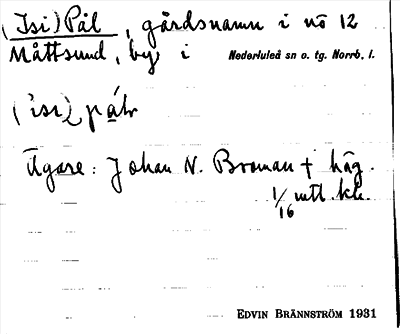 (Isi)Pål, gårdsnamn i nö 12
Måttsund, by i Nederluleå sn o. tg. Norrb. l.
Ägare: Johan N. Broman † häg.
1/16 mtl. kr.
EDVIN BRÄNNSTRÖM 1931